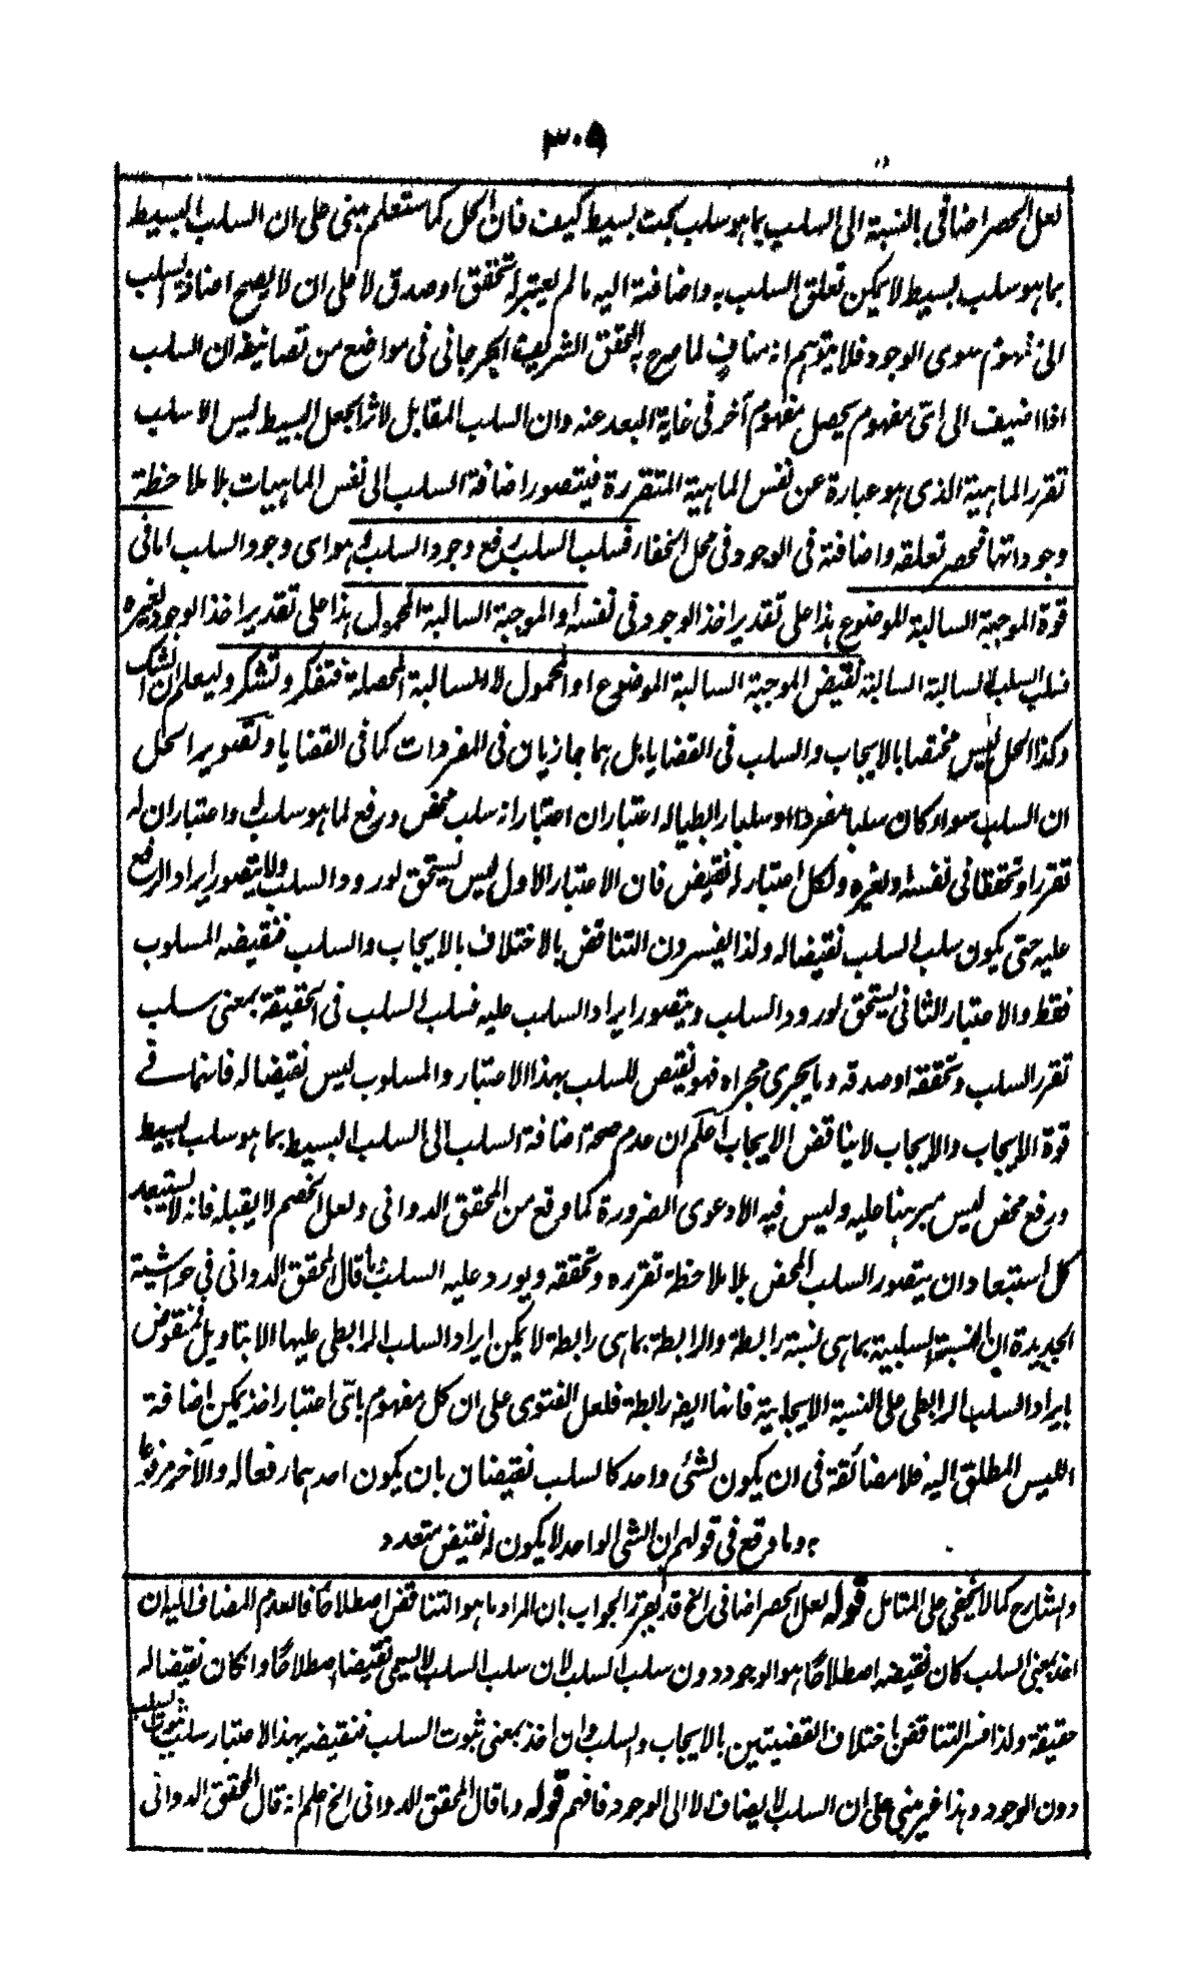 ٣٠٥
لعل الحصر اضافى بالنسبة الى السلب بما هو سلب بحت بسيط كيف فان الحل كما ستعلم مبنى على ان السلب البسيط
بما هو سلب بسيط لا يمكن تعلق السلب به واضافته اليه ما لم يعتبر له تحقق او صدق لا على ان لا يصح اضافة السلب
الى مفهوم سوى الوجود فلا يتوهم انه مناف لما صرح به المحقق الشريف الجرجانى فى مواضع من تصانيفه ان السلب
اذا اضيف الى اى مفهوم يحصل مفهوم آخر فى غاية البعد عنه وان السلب المقابل لاثر الجعل البسيط ليس الا سلب
تقرر الماهية الذى هو عبارة عن نفس الماهية المتقررة فيتصور اضافة السلب الى نفس الماهيات بلا ملاحظة
وجوداتها فحصر تعلقه واضافته فى الوجود فى محل الخفاء فسلب السلب رفع وجود السلب هو اى وجود السلب اما فى
قوة الموجبة السالبة الموضوع هذا على تقدير اخذ الوجود فى نفسه او الموجبة السالبة المحمول هذا على تقدير اخذ الوجود لغيره
فسلب السلب السالبة السالبة نقيض الموجبة السالبة الموضوع او المحمول لا السالبة المحصلة فتفكر وتشكر وليعلم ان الشك
وكذا الحل ليس مختصا بالايجاب والسلب فى القضايا بل هما جاريان فى المفردات كما فى القضايا وتصوير الحل
ان السلب سواء كان سلبا مفردا او سلبا رابطيا له اعتباران اعتبار انه سلب محض ورفع لما هو سلب له واعتبار ان له
تقررا وتحققا فى نفسه او لغيره ولكل اعتبار له نقيض فان الاعتبار الاول ليس يستحق لورود السلب ولا يتصور ايراد الرفع
عليه حتى يكون سلب السلب نقيضا له ولذا يفسرون التناقض بالاختلاف بالايجاب والسلب فنقيضه المسلوب
فقط والاعتبار الثانى يستحق لورود السلب ويتصور ايراد السلب عليه فسلب السلب فى الحقيقة بمعنى سلب
تقرر السلب وتحققه او صدقه وما يجرى مجراه فهو نقيض للسلب بهذا الاعتبار والمسلوب ليس نقيضا له فانهما فى
قوة الايجاب والايجاب لا يناقض الايجاب اعلم ان عدم صحة اضافة السلب الى السلب البسيط بما هو سلب بسيط
ورفع محض ليس مبرهنا عليه وليس فيه الا دعوى الضرورة كما وقع من المحقق الدوانى ولعل الخصم لا يقبله فانه لا يستبعد
كل استبعاد ان يتصور السلب المحض بلا ملاحظة تقرره وتحققه ويورد عليه السلب وما قال المحقق الدوانى فى حواشيه
الجديدة ان النسبة السلبية بما هى نسبة رابطة والرابطة بما هى رابطة لا يمكن ايراد السلب الرابطى عليها الا بتاويل فمنقوض
بايراد السلب الرابطى على النسبة الايجابية فانها ايضا رابطة فلعل الفتوى على ان كل مفهوم باى اعتبار اخذ يمكن اضافة
الليس المطلق اليه فلا مضائقة فى ان يكون لشئ واحد كالسلب نقيضان بان يكون احدهما رفعا له والآخر مرفوعا
به وما وقع فى قولهم ان الشئ الواحد لا يكون له نقيض متعدد
والشارح كما لا يخفى على المتامل قوله لعل الحصر اضافى الخ قد يقرر الجواب بان المراد ما هو التناقض اصطلاحا فالعدم المضاف اليه ان
اخذ بمعنى السلب كان نقيضه اصطلاحا هو الوجود دون سلب السلب لان سلب السلب لا يسمى نقيضا اصطلاحا وان كان نقيضا له
حقيقة ولذا فسر التناقض باختلاف القضيتين بالايجاب والسلب وان اخذ بمعنى ثبوت السلب فنقيضه بهذا الاعتبار سلب ثبوت السلب
دون الوجود وهذا غير مبنى على ان السلب لا يضاف الا الى الوجود فافهم قوله وما قال المحقق الدوانى الخ اعلم انه قال المحقق الدوانى